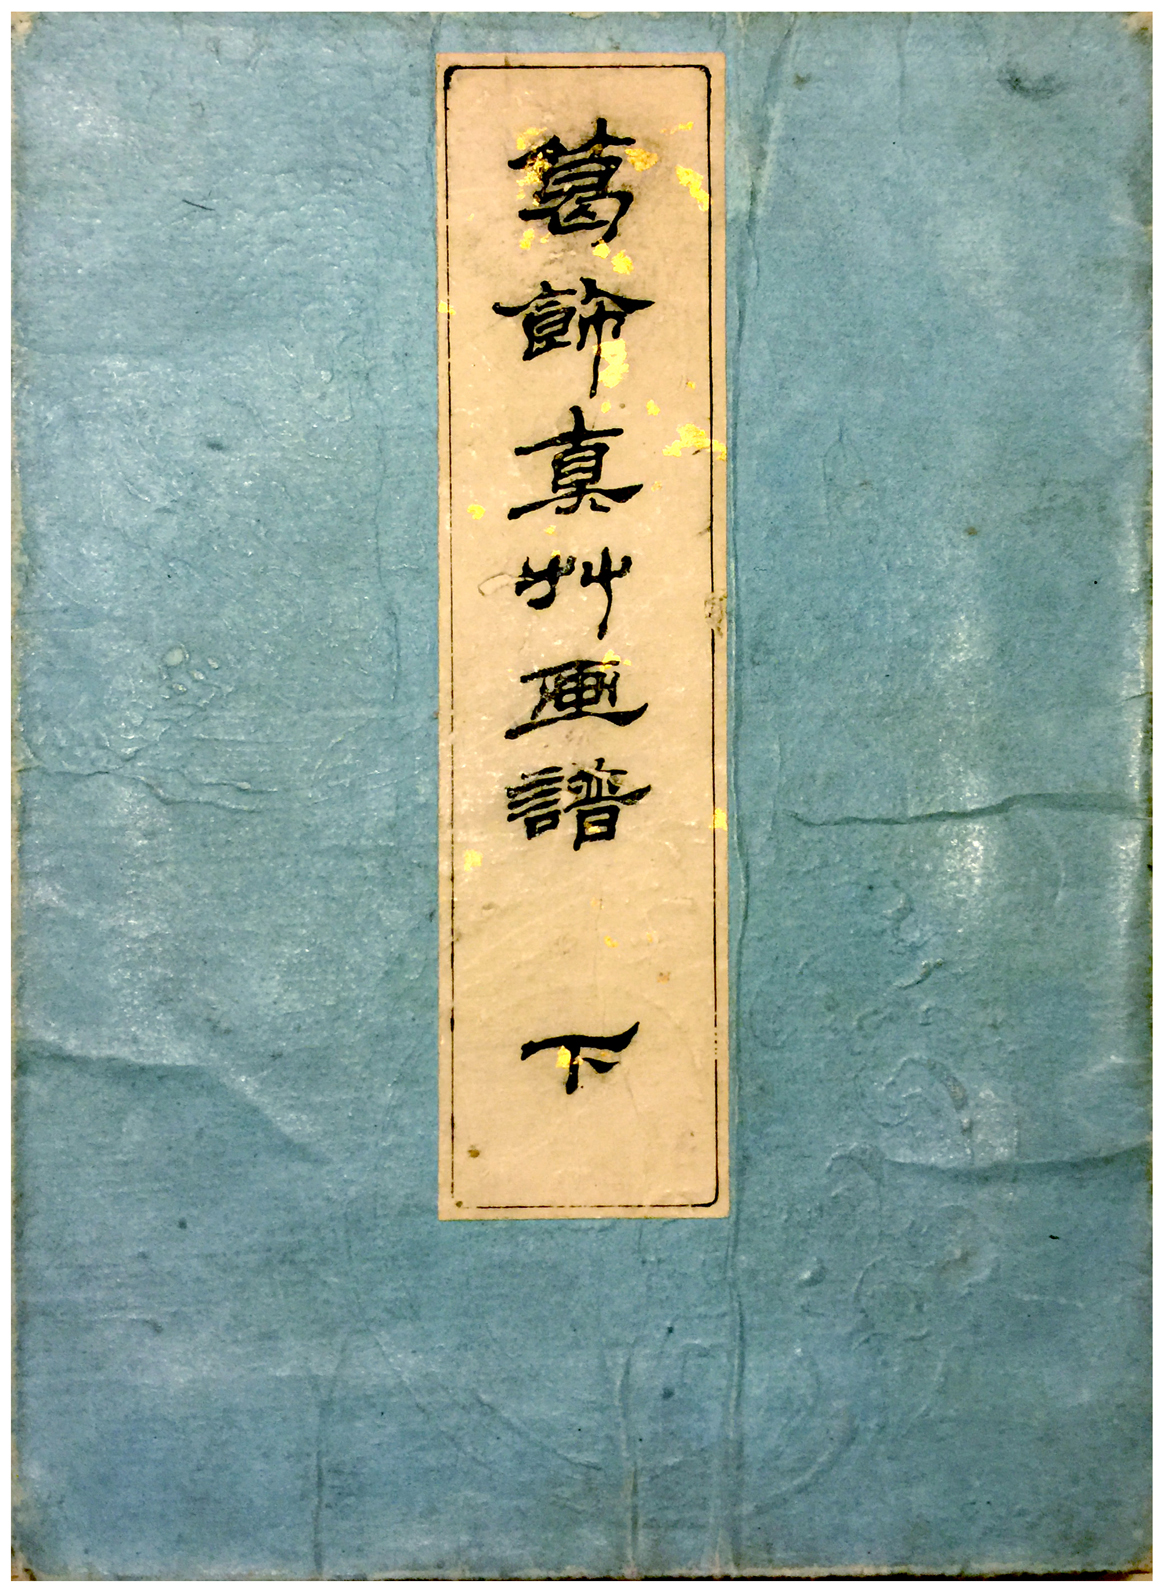 葛飾真艸画譜 下